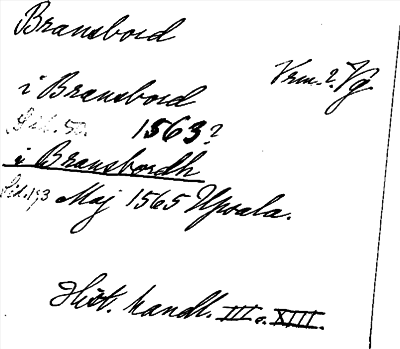 Bransbord
Vrm. ? Vg.
i Bransbord
Sid. 50. 1563?
i Bransbordh
Sid. 193 Maj 1565 Upsala.
Hist. handl. III o. XIII.